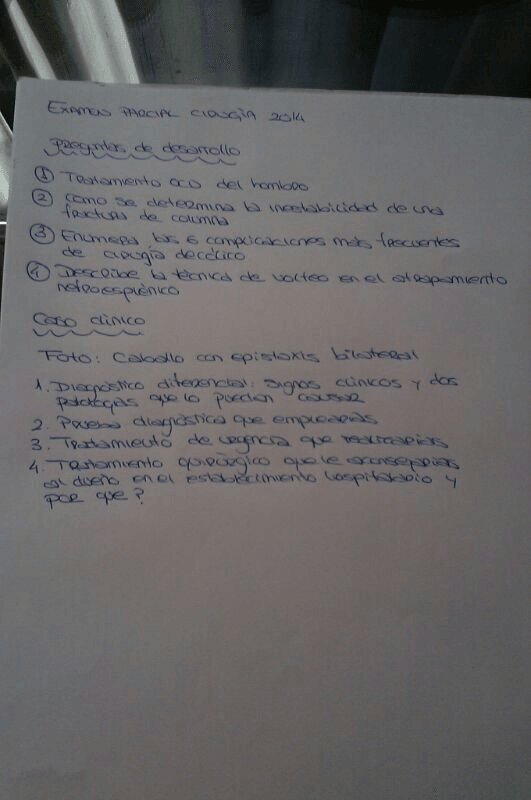 EXAMEN PARCIAL CIRUGÍA 2014
Preguntas de desarrollo
① Tratamiento OCD del hombro
② Como se determina la inestabilidad de una
fractura de columna
③ Enumera las 6 complicaciones más frecuentes
de cirugía de cólico
④ Describe la técnica de volteo en el atrapamiento
nefroesplénico
Caso clínico
Foto: Caballo con epistaxis bilateral
1. Diagnóstico diferencial: signos clínicos y dos
patologías que lo puedan causar
2. Prueba diagnóstica que emplearías
3. Tratamiento de urgencia que realizarías
4. Tratamiento quirúrgico que le aconsejarías
al dueño en el establecimiento hospitalario y
por que?